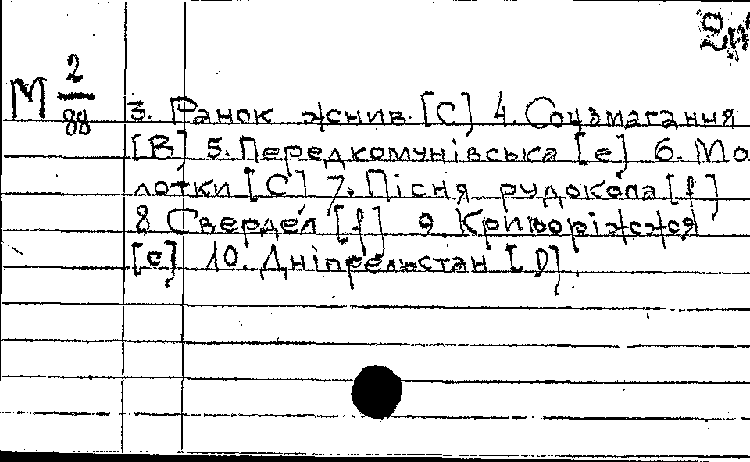 М 2/88
3. Ранок жнив. [C] 4. Соцзмагання
[B] 5. Передкомунівська [e] 6. Мо
лотки [C] 7. Пісня рудокопа [f]
8 Свердел [f] 9. Криворіжжя
[c] 10. Дніпрельстан [D].